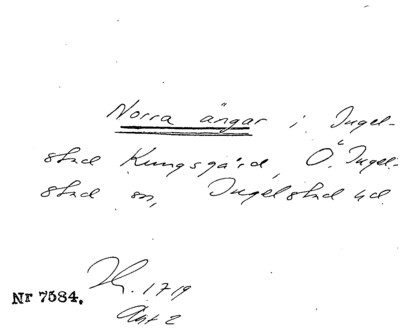 Norra ängar i Ingel-
stad Kungsgård, Ö. Ingel-
stad sn, Ingelstad hd.
Nr 7584.
1719
Akt 2